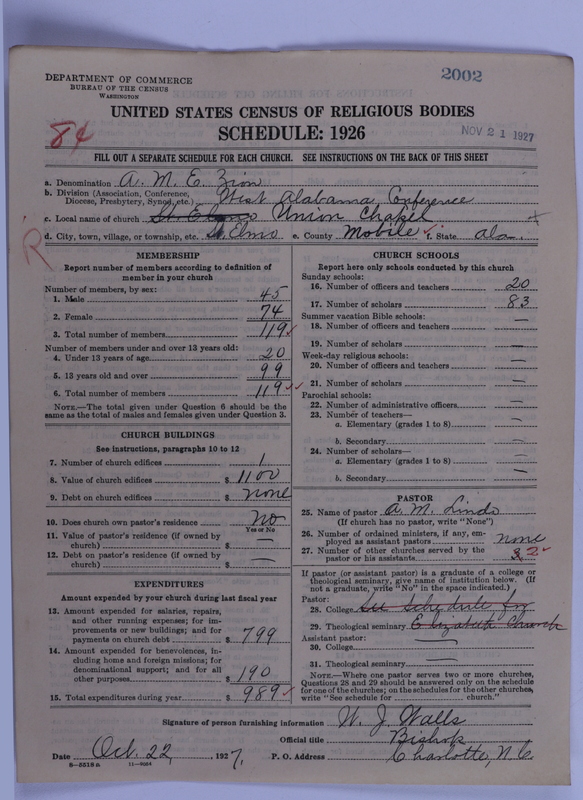 DEPARTMENT OF COMMERCE
BUREAU OF THE CENSUS
WASHINGTON
2002
UNITED STATES CENSUS OF RELIGIOUS BODIES
SCHEDULE: 1926
84
NOV 21 1927
FILL OUT A SEPARATE SCHEDULE FOR EACH CHURCH. SEE INSTRUCTIONS ON THE BACK OF THIS SHEET
a. Denomination A. M. E. Zion
b. Division (Association, Conference, Diocese, Presbytery, Synod, etc.) West Alabama Conference
c. Local name of church St. Elmo Union Chapel
d. City, town, village, or township, etc. St Elmo e. County Mobile f. State Ala.
R
MEMBERSHIP
Report number of members according to definition of
member in your church
Number of members, by sex:
1. Male 45
2. Female 74
3. Total number of members 119
Number of members under and over 13 years old:
4. Under 13 years of age 20
5. 13 years old and over 99
6. Total number of members 119
NOTE.—The total given under Question 6 should be the
same as the total of males and females given under Question 3.
CHURCH BUILDINGS
See instructions, paragraphs 10 to 12
7. Number of church edifices 1
8. Value of church edifices $ 1100
9. Debt on church edifices $ none
10. Does church own pastor's residence No
Yes or No
11. Value of pastor's residence (if owned by
church) $ —
12. Debt on pastor's residence (if owned by
church) $ —
EXPENDITURES
Amount expended by church during last fiscal year
13. Amount expended for salaries, repairs,
and other running expenses; for im-
provements or new buildings; and for
payments on church debt $ 799
14. Amount expended for benevolences, in-
cluding home and foreign missions; for
denominational support; and for all
other purposes $ 190
15. Total expenditures during year $ 989
CHURCH SCHOOLS
Report here only schools conducted by this church
Sunday schools:
16. Number of officers and teachers 20
17. Number of scholars 83
Summer vacation Bible schools:
18. Number of officers and teachers —
19. Number of scholars —
Week-day religious schools:
20. Number of officers and teachers —
21. Number of scholars —
Parochial schools:
22. Number of administrative officers —
23. Number of teachers—
a. Elementary (grades 1 to 8) —
b. Secondary —
24. Number of scholars—
a. Elementary (grades 1 to 8) —
b. Secondary —
PASTOR
25. Name of pastor A. M. Lindo
(If church has no pastor, write "None")
26. Number of ordained ministers, if any, em-
ployed as assistant pastors none
27. Number of other churches served by the
pastor or his assistants 2
If pastor (or assistant pastor) is a graduate of a college or
theological seminary, give name of institution below. (If
not a graduate, write "No" in the space indicated.)
Pastor:
28. College See Schedule for
29. Theological seminary Elizabeth Church
Assistant pastor:
30. College —
31. Theological seminary —
NOTE.—Where one pastor serves two or more churches,
Questions 28 and 29 should be answered only on the schedule
for one of the churches; on the schedules for the other churches,
write "See schedule for ______ church."
Signature of person furnishing information W. J. Walls
Official title Bishop
Date Oct. 22, 1927. P. O. Address Charlotte, N. C.
8—5518a 11—9084